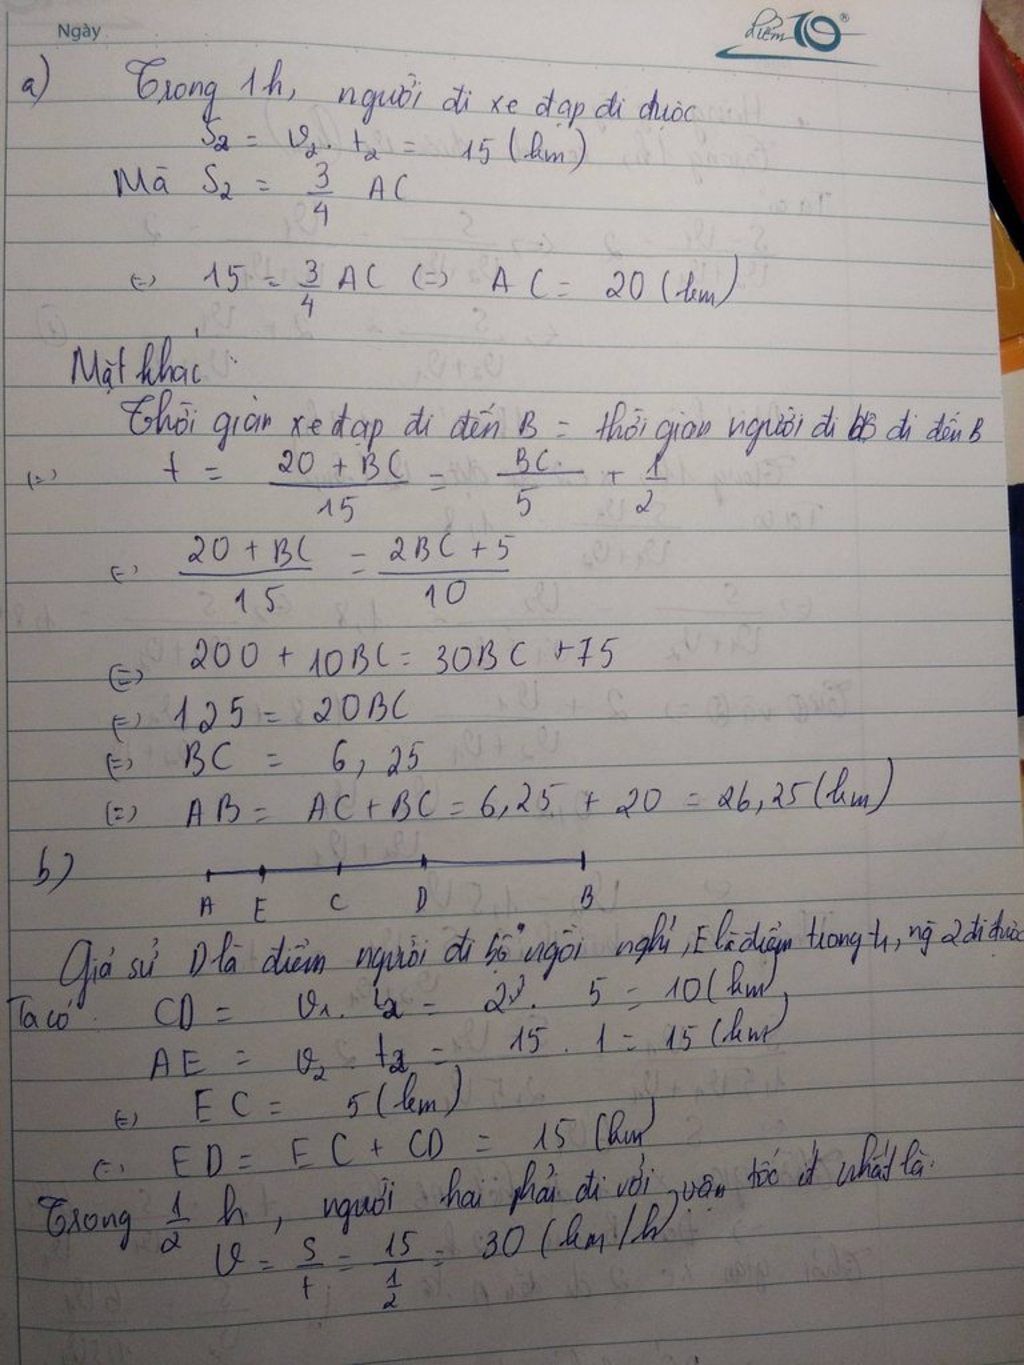 Ngày
điểm 10®
a) Trong 1h, người đi xe đạp đi được
S₂ = v₂. t₂ = 15 (km)
Mà S₂ = 3/4 AC
(=) 15 = 3/4 AC (=) AC = 20 (km)
Mặt khác:
Thời gian xe đạp đi đến B = thời gian người đi bộ đi đến B
(=) t = (20 + BC)/15 = BC/5 + 1/2
(=) (20 + BC)/15 = (2BC + 5)/10
(=) 200 + 10BC = 30BC + 75
(=) 125 = 20BC
(=) BC = 6,25
(=) AB = AC + BC = 6,25 + 20 = 26,25 (km)
b)
A E C D B
Giả sử D là điểm người đi bộ ngồi nghỉ, E là điểm trong 1h, ng 2 đi được
Ta có: CD = v₁. t₂ = 2. 5 = 10 (km)
AE = v₂. t₂ = 15. 1 = 15 (km)
(=) EC = 5 (km)
(=) ED = EC + CD = 15 (km)
Trong 1/2 h, người hai phải đi với vận tốc ít nhất là:
v = S/t = 15/(1/2) = 30 (km/h)